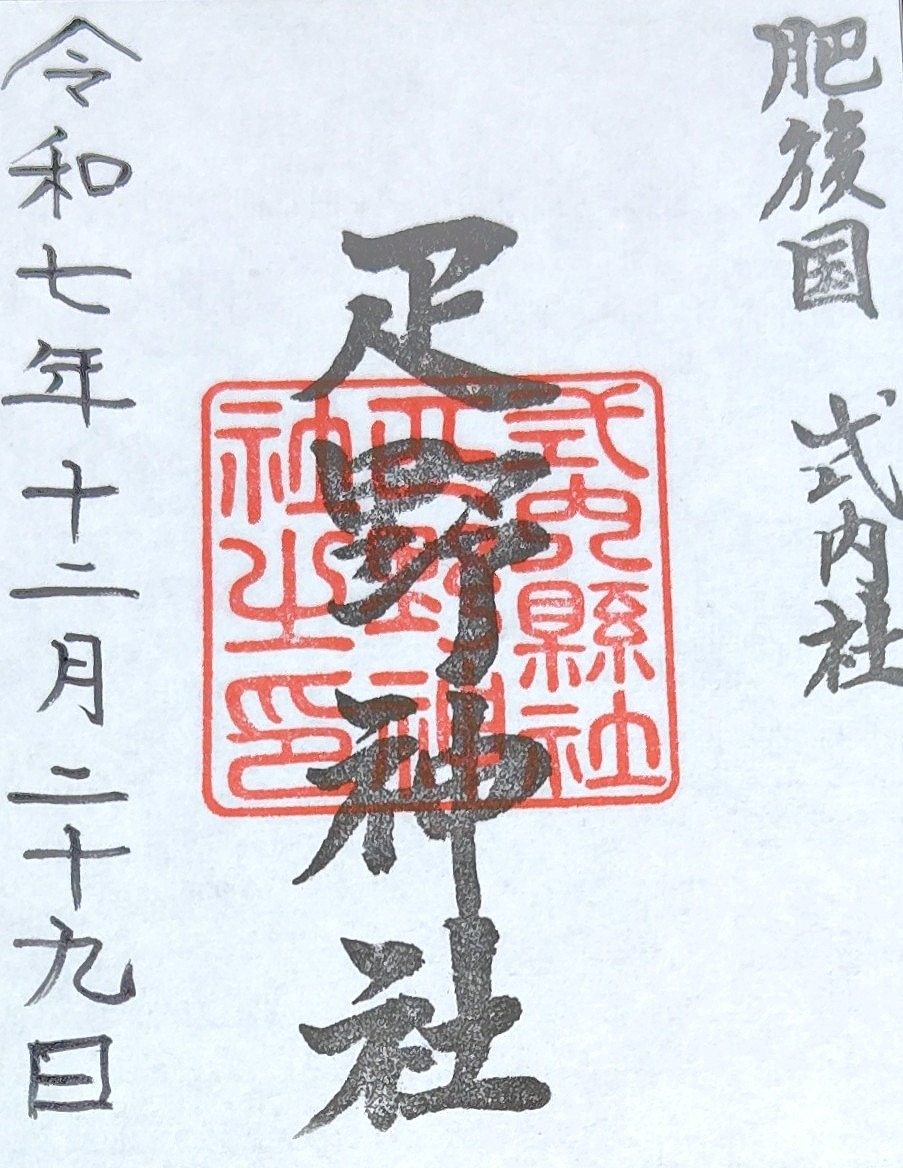 肥後国 式内社
疋野神社
式内縣社
疋野神
社之印
令和七年十二月二十九日